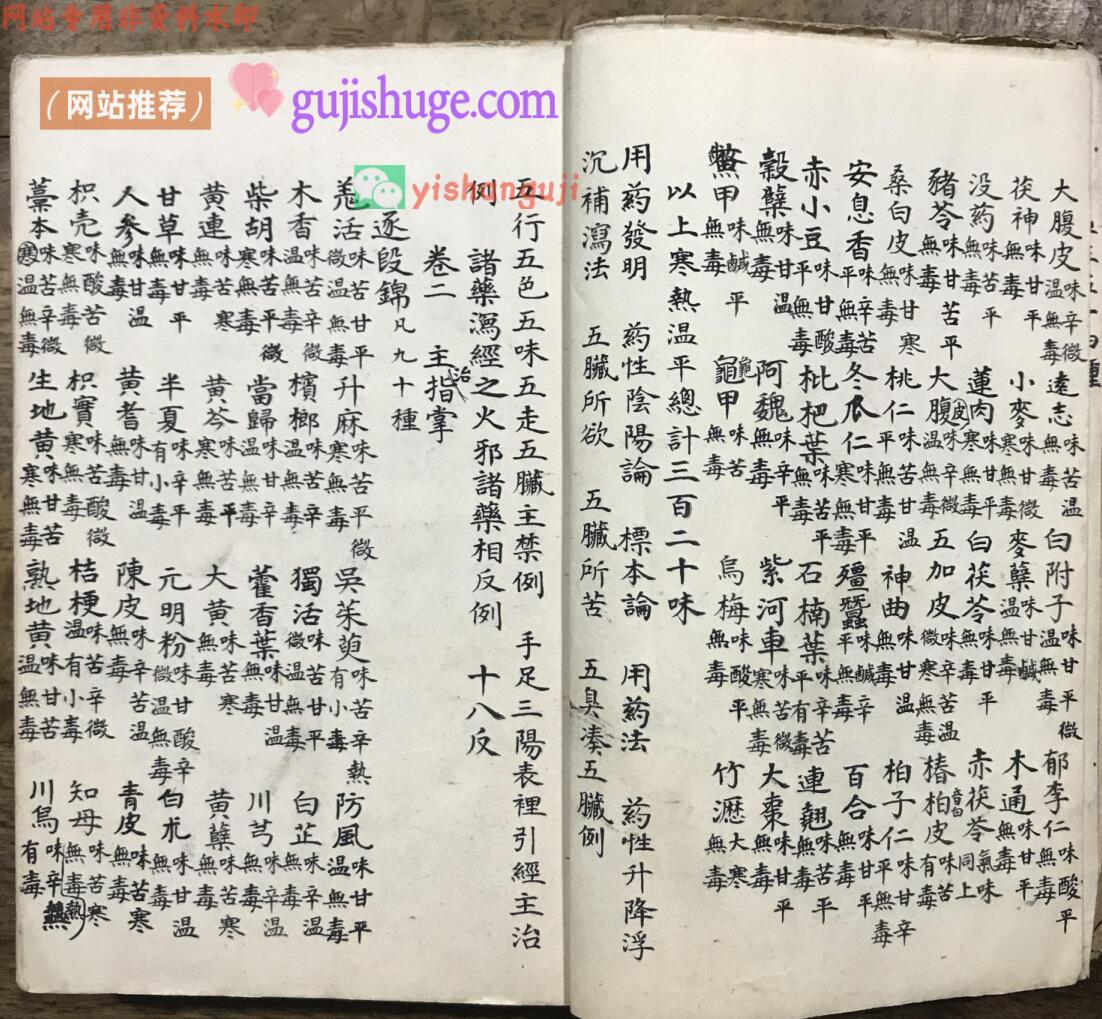 网站专用非资料水印
（网站推荐）
gujishuge.com
yishanguji
大腹皮味辛微温無毒 遠志味苦温無毒 白附子味甘平微温無毒 郁李仁味酸平無毒
茯神味甘平無毒 小麥味甘微寒無毒 麥蘗味甘鹹温無毒 木通味甘平無毒
没药味苦平無毒 蓮肉味甘平寒無毒 白茯苓味甘平無毒 赤茯苓氣味同上
豬苓味甘苦平無毒 大腹皮味辛微温無毒 五加皮味辛苦微寒無毒 椿白柏皮味苦有毒
桑白皮味甘寒無毒 桃仁味苦甘平無毒 神曲味甘温無毒 柏子仁味甘辛平無毒
安息香味辛苦平無毒 冬瓜仁味甘平寒無毒 殭蠶味鹹辛平無毒 百合味甘平無毒
赤小豆味甘酸平無毒 枇杷葉味苦平無毒 石楠葉味辛苦平有毒 連翹味苦平無毒
穀蘗味甘温無毒 阿魏味辛平無毒 紫河車味苦微寒無毒 大棗味甘平無毒
鱉甲味鹹平無毒 龜甲味苦無毒 烏梅味酸平無毒 竹瀝大寒無毒
以上寒熱温平總計三百二十味
用药發明 药性陰陽論 標本論 用药法 药性升降浮
沉補瀉法 五臟所欲 五臟所苦 五臭凑五臟例
五行五色五味五走五臟主禁例 手足三陽表裡引經主治
例 諸藥瀉經之火邪諸藥相反例 十八反
卷二 主治指掌
逐段錦凡九十種
羗活味甘平微温無毒 升麻味苦平微寒無毒 吳茱萸味苦辛熱有小毒 防風味甘平温無毒
木香味苦辛微温無毒 檳榔味苦辛温無毒 獨活味苦甘平微温無毒 白芷味辛温無毒
柴胡味苦平微寒無毒 當歸味甘辛温無毒 藿香葉味甘温無毒 川芎味辛温無毒
黃連味苦寒無毒 黃芩味苦平寒無毒 大黃味苦寒無毒 黃蘗味苦寒無毒
甘草味甘平無毒 半夏味辛平有小毒 元明粉味甘酸辛微温無毒 白朮味甘温無毒
人參味甘温無毒 黃耆味甘温無毒 陳皮味辛苦温無毒 青皮味苦寒無毒
枳壳味酸苦微寒無毒 枳實味苦酸微寒無毒 桔梗味苦辛微温有小毒 知母味苦寒無毒
藁本味苦辛微寒温無毒 生地黃味甘苦寒無毒 熟地黃味甘苦温無毒 川烏味辛熱有毒